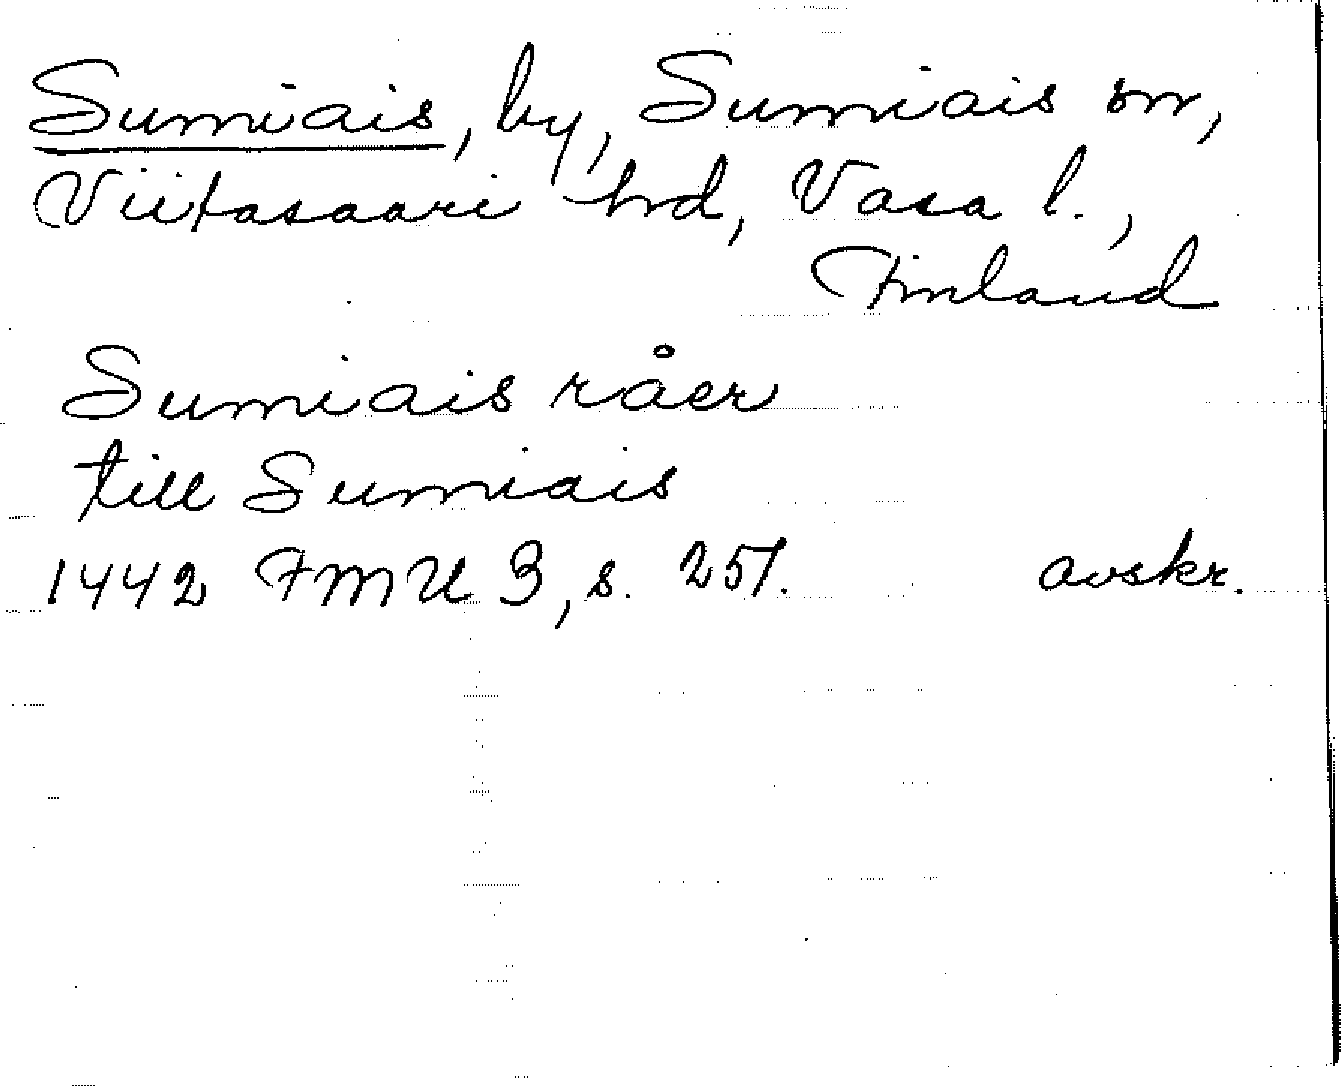 Sumiais, by, Sumiais sn,
Viitasaari hd, Vasa l.,
Finland
Sumiais råer
till Sumiais
1442 FMU 3, s. 251. avskr.